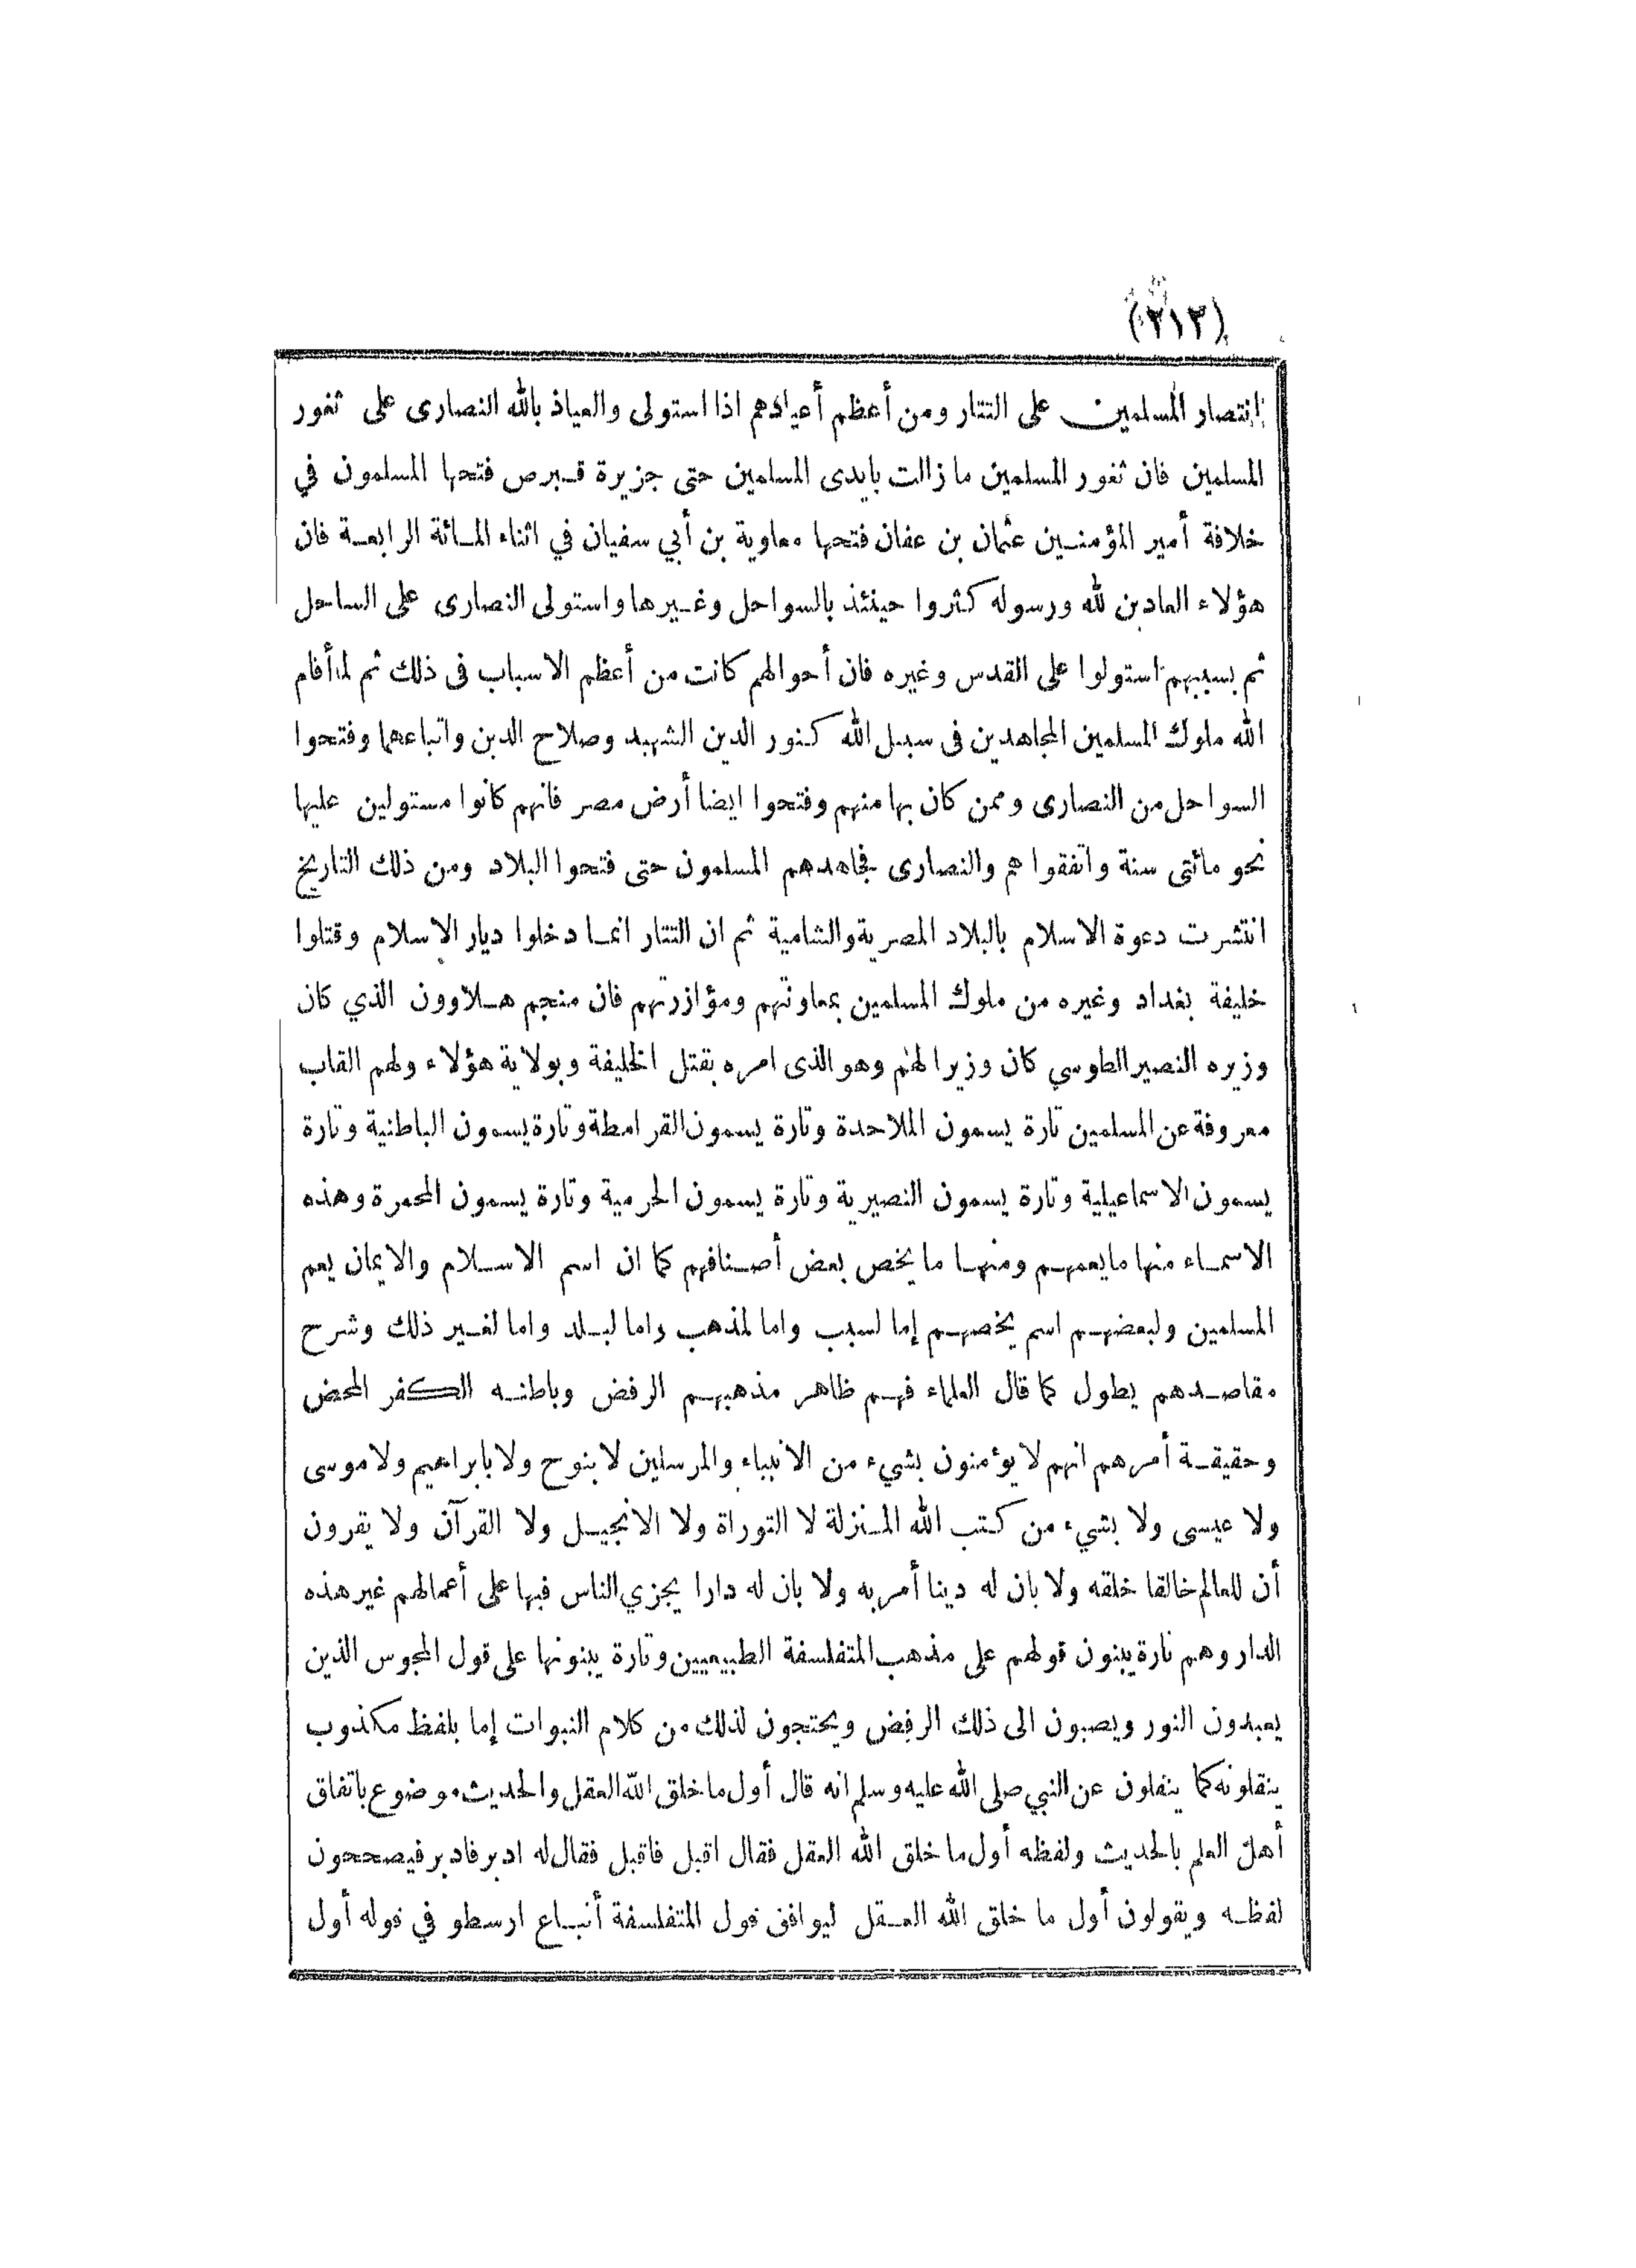 (٢١٣)
انتصار المسلمين على التتار ومن أعظم أعيادهم اذا استولى والعياذ بالله النصارى على ثغور
المسلمين فان ثغور المسلمين ما زالت بايدى المسلمين حتى جزيرة قبرص فتحها المسلمون في
خلافة أمير المؤمنين عثمان بن عفان فتحها معاوية بن أبي سفيان في اثناء المائة الرابعة فان
هؤلاء المحادين لله ورسوله كثروا حينئذ بالسواحل وغيرها واستولى النصارى على الساحل
ثم بسببهم استولوا على القدس وغيره فان أحوالهم كانت من أعظم الاسباب فى ذلك ثم لما أقام
الله ملوك المسلمين المجاهدين فى سبيل الله كنور الدين الشهيد وصلاح الدين واتباعهما وفتحوا
السواحل من النصارى وممن كان بها منهم وفتحوا ايضا أرض مصر فانهم كانوا مستولين عليها
نحو مائتى سنة واتفقوا هم والنصارى فجاهدهم المسلمون حتى فتحوا البلاد ومن ذلك التاريخ
انتشرت دعوة الاسلام بالبلاد المصرية والشامية ثم ان التتار انما دخلوا ديار الاسلام وقتلوا
خليفة بغداد وغيره من ملوك المسلمين بمعاونتهم ومؤازرتهم فان منجم هلاوون الذي كان
وزيره النصير الطوسي كان وزيرا لهم وهو الذى امره بقتل الخليفة وبولاية هؤلاء ولهم القاب
معروفة عن المسلمين تارة يسمون الملاحدة وتارة يسمون القرامطة وتارة يسمون الباطنية وتارة
يسمون الاسماعيلية وتارة يسمون النصيرية وتارة يسمون الحرمية وتارة يسمون المحمرة وهذه
الاسماء منها ما يعمهم ومنها ما يخص بعض أصنافهم كما ان اسم الاسلام والايمان يعم
المسلمين ولبعضهم اسم يخصهم إما لسبب واما لمذهب واما لبلد واما لغير ذلك وشرح
مقاصدهم يطول كما قال العلماء فهم ظاهر مذهبهم الرفض وباطنه الكفر المحض
وحقيقة أمرهم انهم لا يؤمنون بشيء من الانبياء والمرسلين لا بنوح ولا بابراهيم ولا موسى
ولا عيسى ولا بشيء من كتب الله المنزلة لا التوراة ولا الانجيل ولا القرآن ولا يقرون
أن للعالم خالقا خلقه ولا بان له دينا أمر به ولا بان له دارا يجزي الناس فيها على أعمالهم غير هذه
الدار وهم تارة يبنون قولهم على مذهب المتفلسفة الطبيعيين وتارة يبنونها على قول المجوس الذين
يعبدون النور ويصبون الى ذلك الرفض ويحتجون لذلك من كلام النبوات إما بلفظ مكذوب
ينقلونه كما ينقلون عن النبي صلى الله عليه وسلم انه قال أول ما خلق الله العقل والحديث موضوع باتفاق
أهل العلم بالحديث ولفظه أول ما خلق الله العقل فقال اقبل فاقبل فقال له ادبر فادبر فيصححون
لفظه ويقولون أول ما خلق الله العقل ليوافق قول المتفلسفة أتباع ارسطو في قوله أول